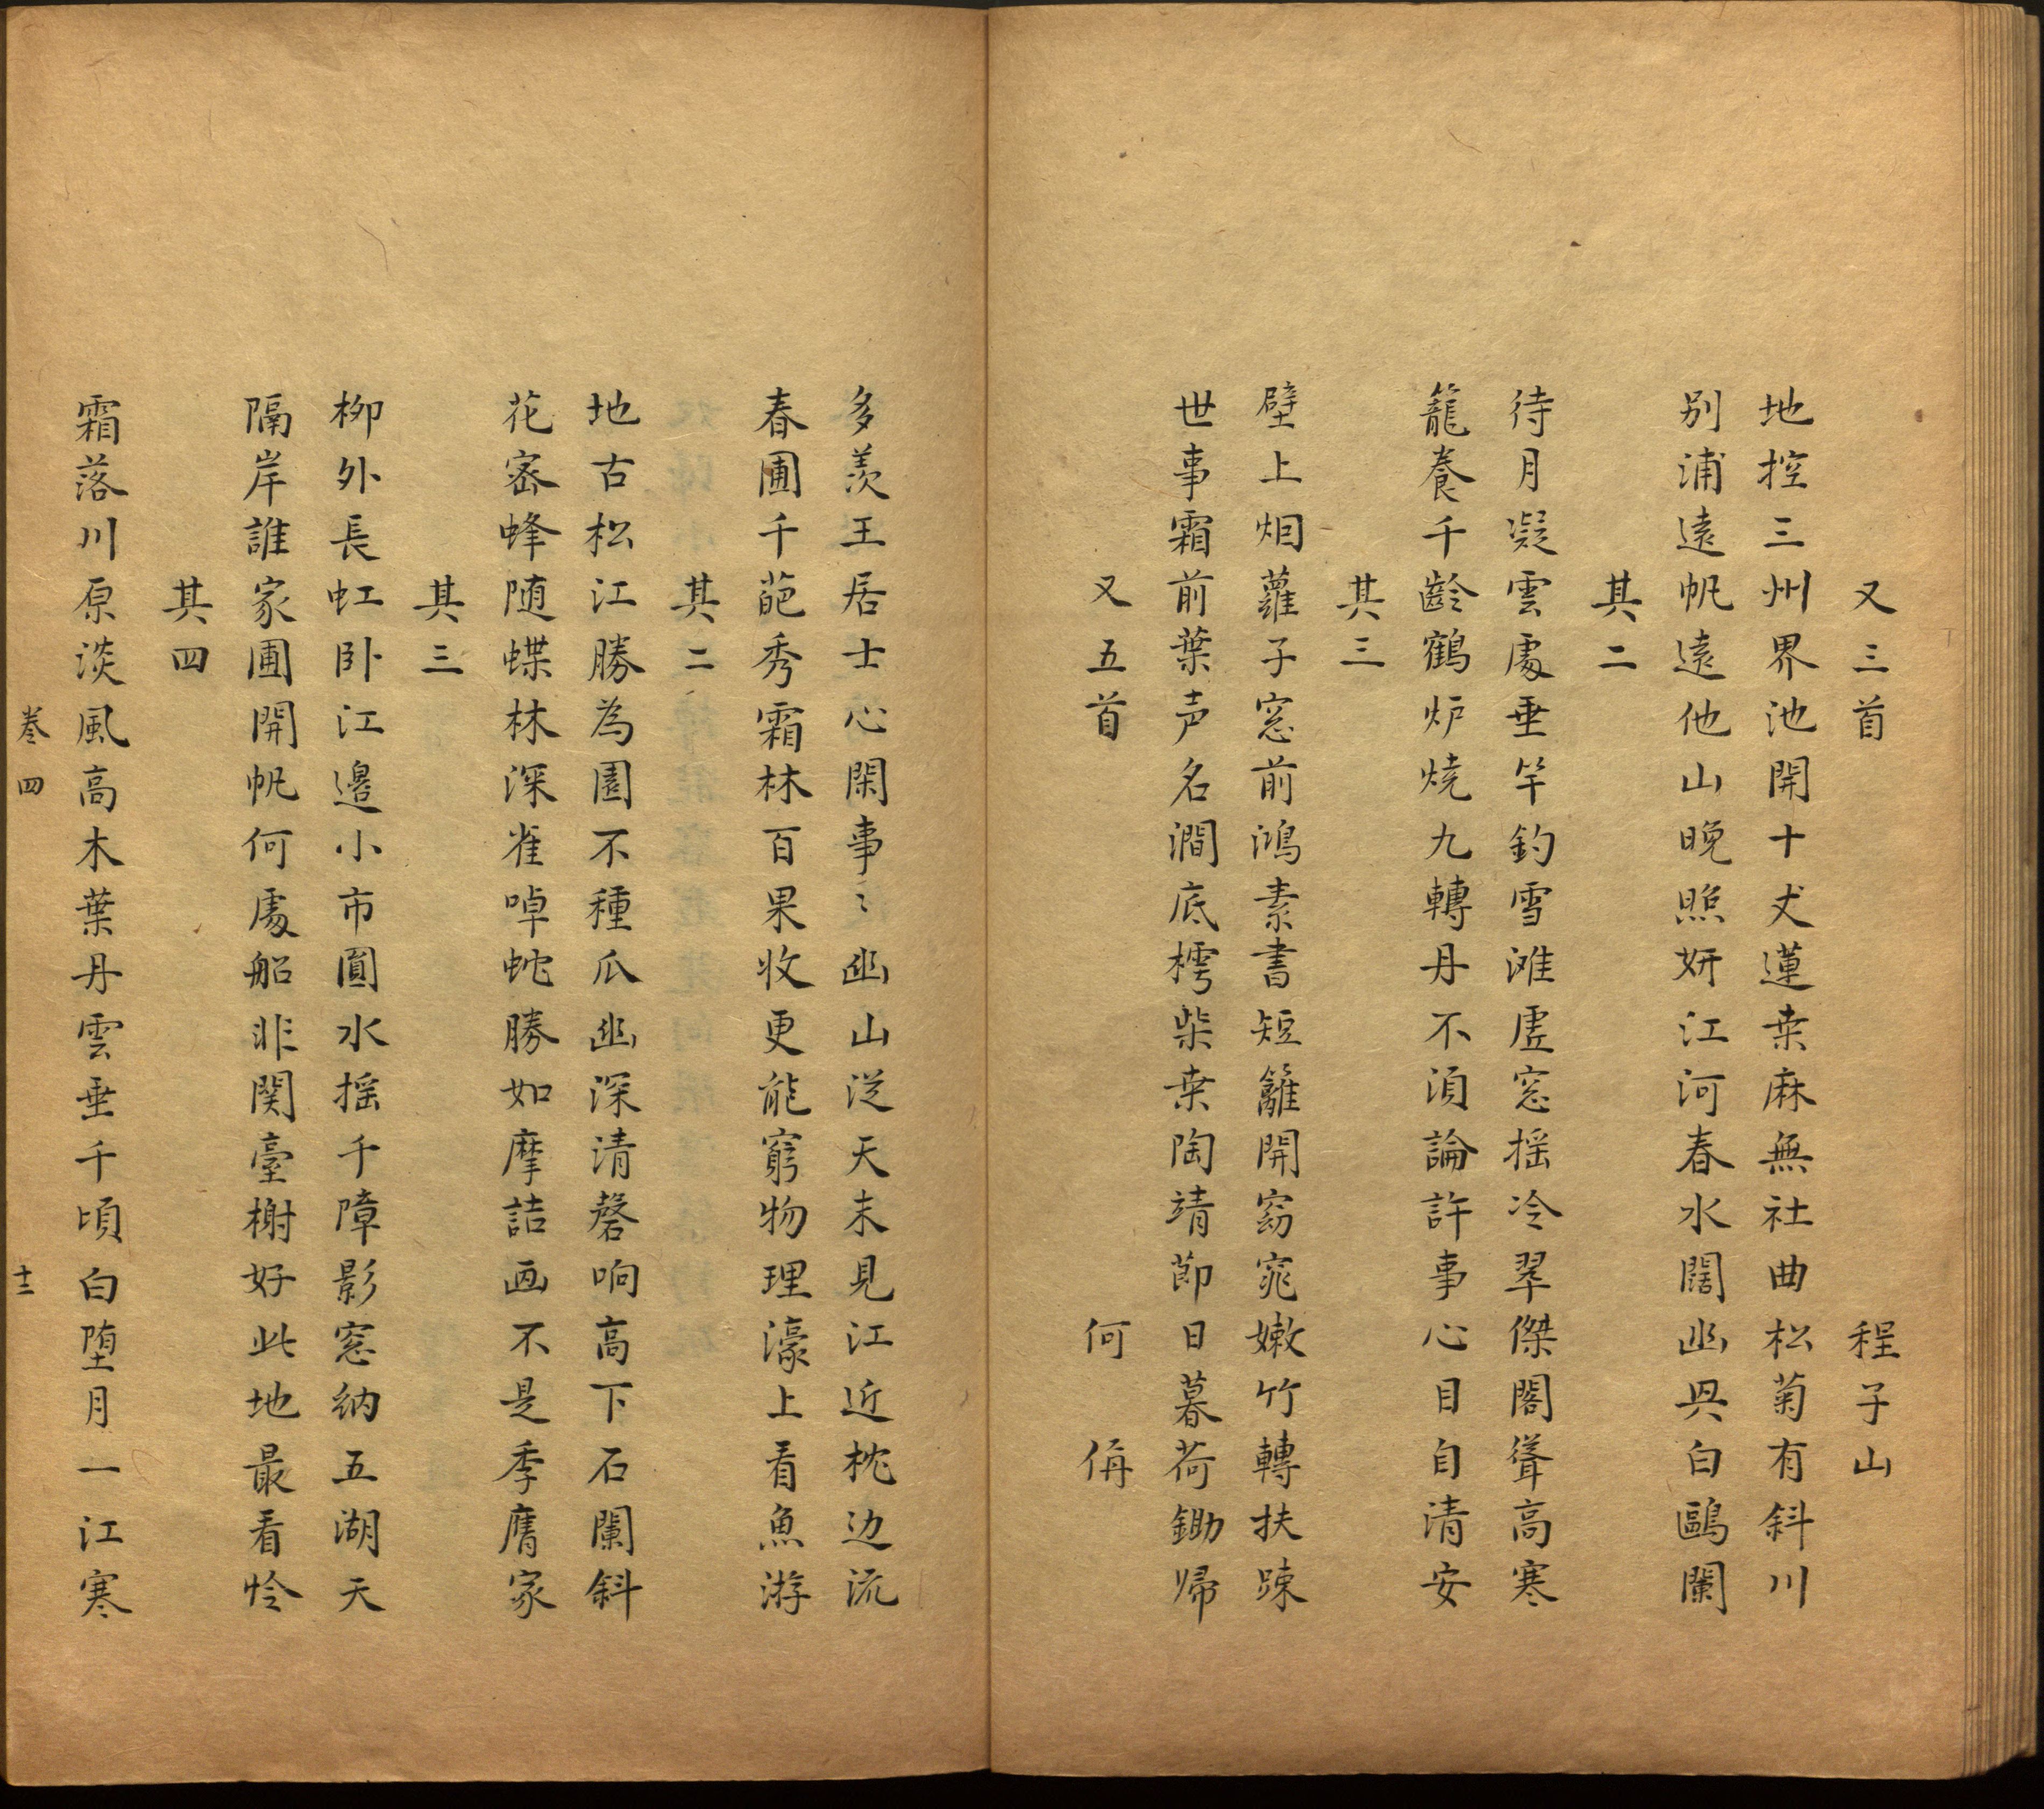 又三首 程子山
地控三州界池開十丈蓮桒麻無社曲松菊有斜川
別浦遠帆遠他山晚照妍江河春水闊幽興白鷗闌
其二
待月凝雲處垂竿釣雪滩虛窓揺冷翠傑閣聳高寒
籠養千齡鶴炉燒九轉丹不須論許事心目自清安
其三
壁上烟蘿子窓前鴻素書短籬開窈窕嫩竹轉扶踈
世事霜前葉声名澗底樗柴桒陶靖節日暮荷鋤歸
又五首 何侑
多羨王居士心閑事〻幽山従天末見江近枕边流
春圃千葩秀霜林百果收更能窮物理濠上看魚游
其二
地古松江勝為園不種瓜幽深清磬响高下石闌斜
花密蜂随蝶林深雀啅蛇勝如摩詰画不是季膺家
其三
栁外長虹卧江邉小市圓水揺千障影窓納五湖天
隔岸誰家圃開帆何處船非関臺榭好此地最看怜
其四
霜落川原淡風高木葉丹雲垂千頃白堕月一江寒
卷四 十三